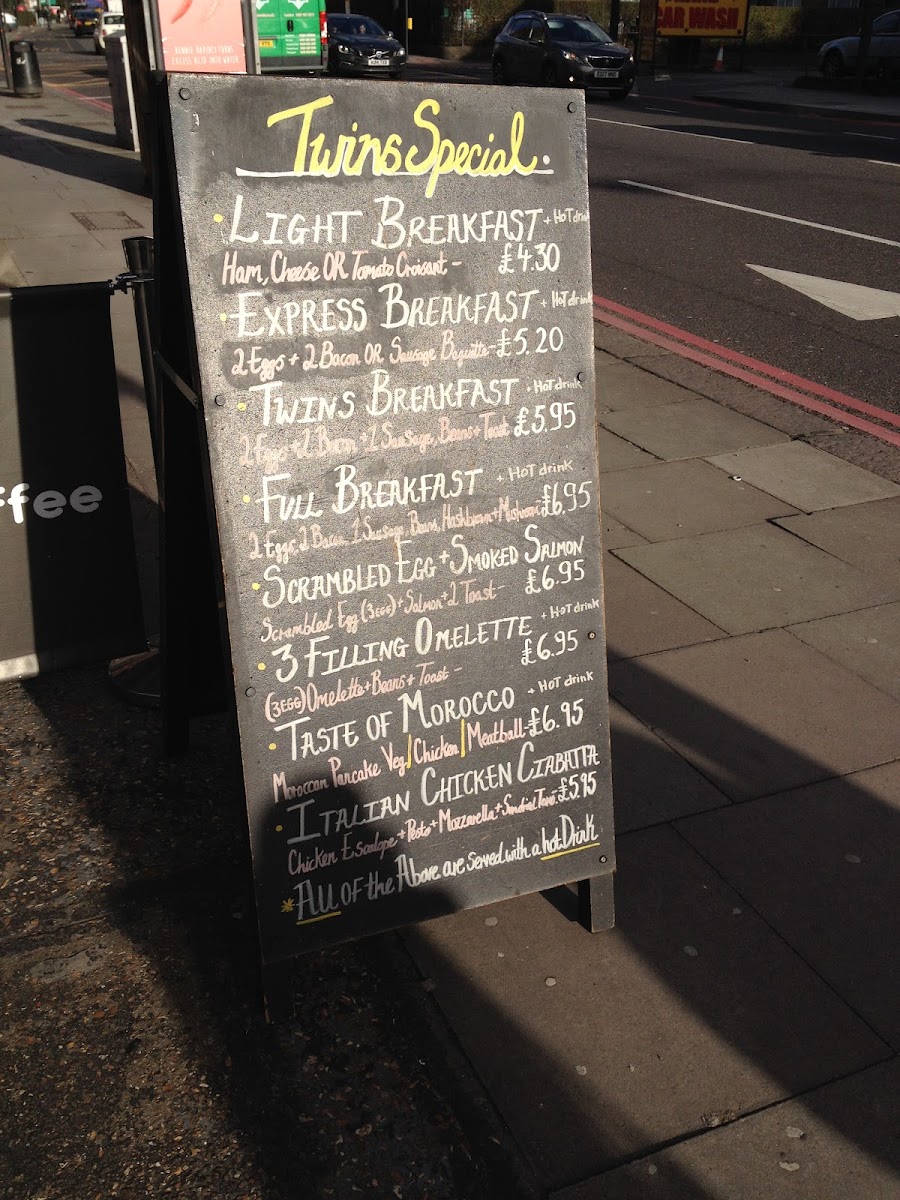 CAR WASH
Twins Special.
LIGHT BREAKFAST + HOT drink
Ham, Cheese OR Tomato Croisant - £4.30
EXPRESS BREAKFAST + HOT drink
2 Eggs + 2 Bacon OR Sausage Baguette - £5.20
TWINS BREAKFAST + HOT drink
2 Eggs + 2 Bacon + 1 Sausage, Beans + Toast £5.95
FULL BREAKFAST + HOT drink
2 Eggs, 2 Bacon, 1 Sausage, Beans, Hashbrown + Mushroom £6.95
SCRAMBLED EGG + SMOKED SALMON
Scrambled Egg (3EGG) + Salmon + 2 Toast - £6.95
3 FILLING OMELETTE + HOT drink
(3EGG) Omelette + Beans + Toast - £6.95
TASTE OF MOROCCO + HOT drink
Moroccan Pancake Veg / Chicken / Meatball - £6.95
ITALIAN CHICKEN CIABATTA
Chicken Escalope + Pesto + Mozzarella + £5.95
* ALL OF the Above are served with a hot Drink
ffee